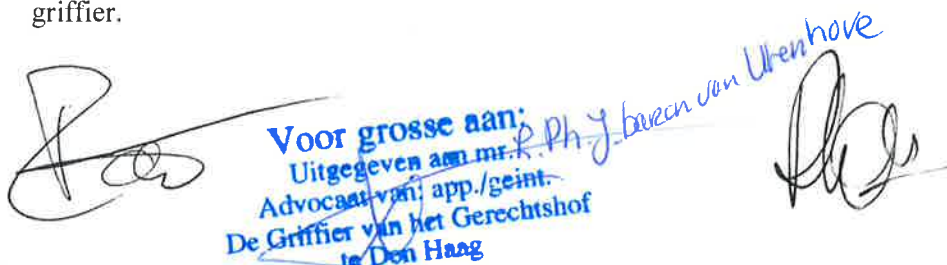 griffier.
Voor grosse aan:
Uitgegeven aan mr. R. Ph. J. baron van Utenhove
Advocaat van: app./geint.
De Griffier van het Gerechtshof
te Den Haag